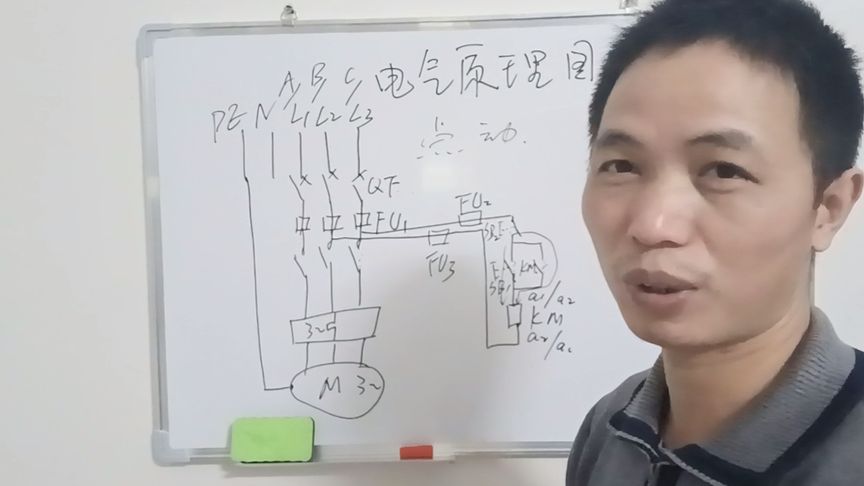 电气原理图
A B C
PE N L1 L2 L3
点动.
QF
FU1
FU2
FU3
SB2 E
KM
E
SB1
a1/a2
KM
a2/a1
M 3~